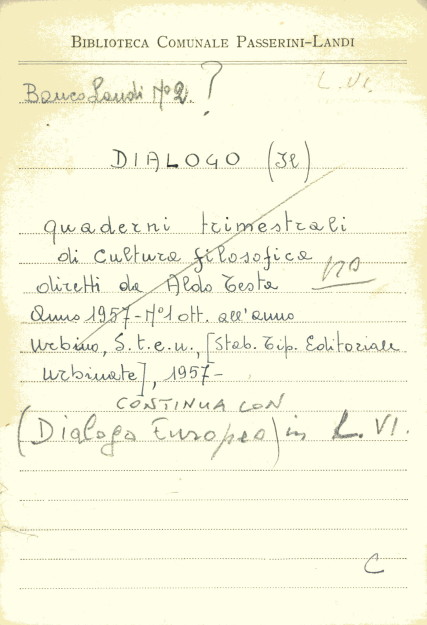 BIBLIOTECA COMUNALE PASSERINI-LANDI
L. VI.
Banco Landi Nº 2. ?
DIALOGO (Il)
quaderni trimestrali
di cultura filosofica
diretti da Aldo Testa
no
Anno 1957-Nº1 ott. all'anno
Urbino, S.t.e.u., [Stab. Tip. Editoriale
Urbinate], 1957-
CONTINUA CON
(Dialogo Europeo) in L. VI.
C